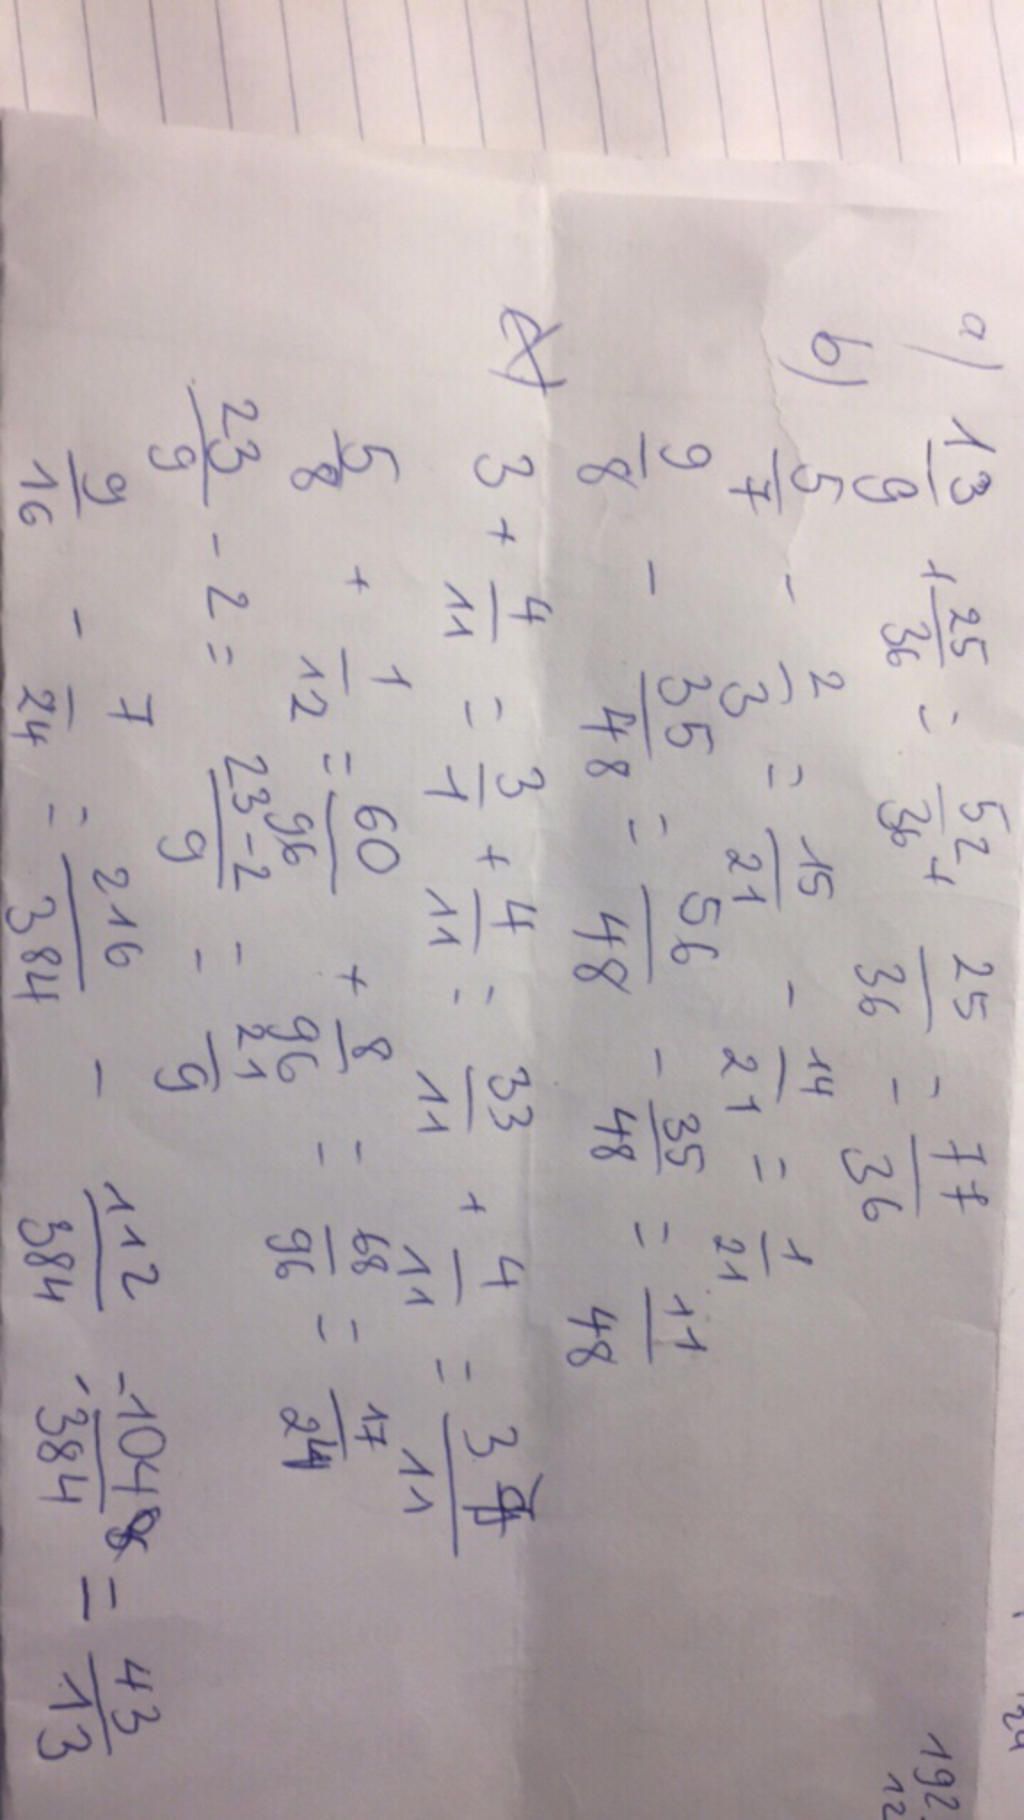 a) 13/9 + 25/36 = 52/36 + 25/36 = 77/36
b) 5/7 - 2/3 = 15/21 - 14/21 = 1/21
9/8 - 35/48 = 56/48 - 35/48 = 11/48
3 + 4/11 = 3/1 + 4/11 = 33/11 + 4/11 = 3 /11
5/8 + 1/12 = 60/96 + 8/96 = 68/96 = 17/24
23/9 - 2 = 23-2/9 = 21/9
9/16 - 7/24 = 216/384 - 112/384 - 104/384 = 43/13
24
192
12